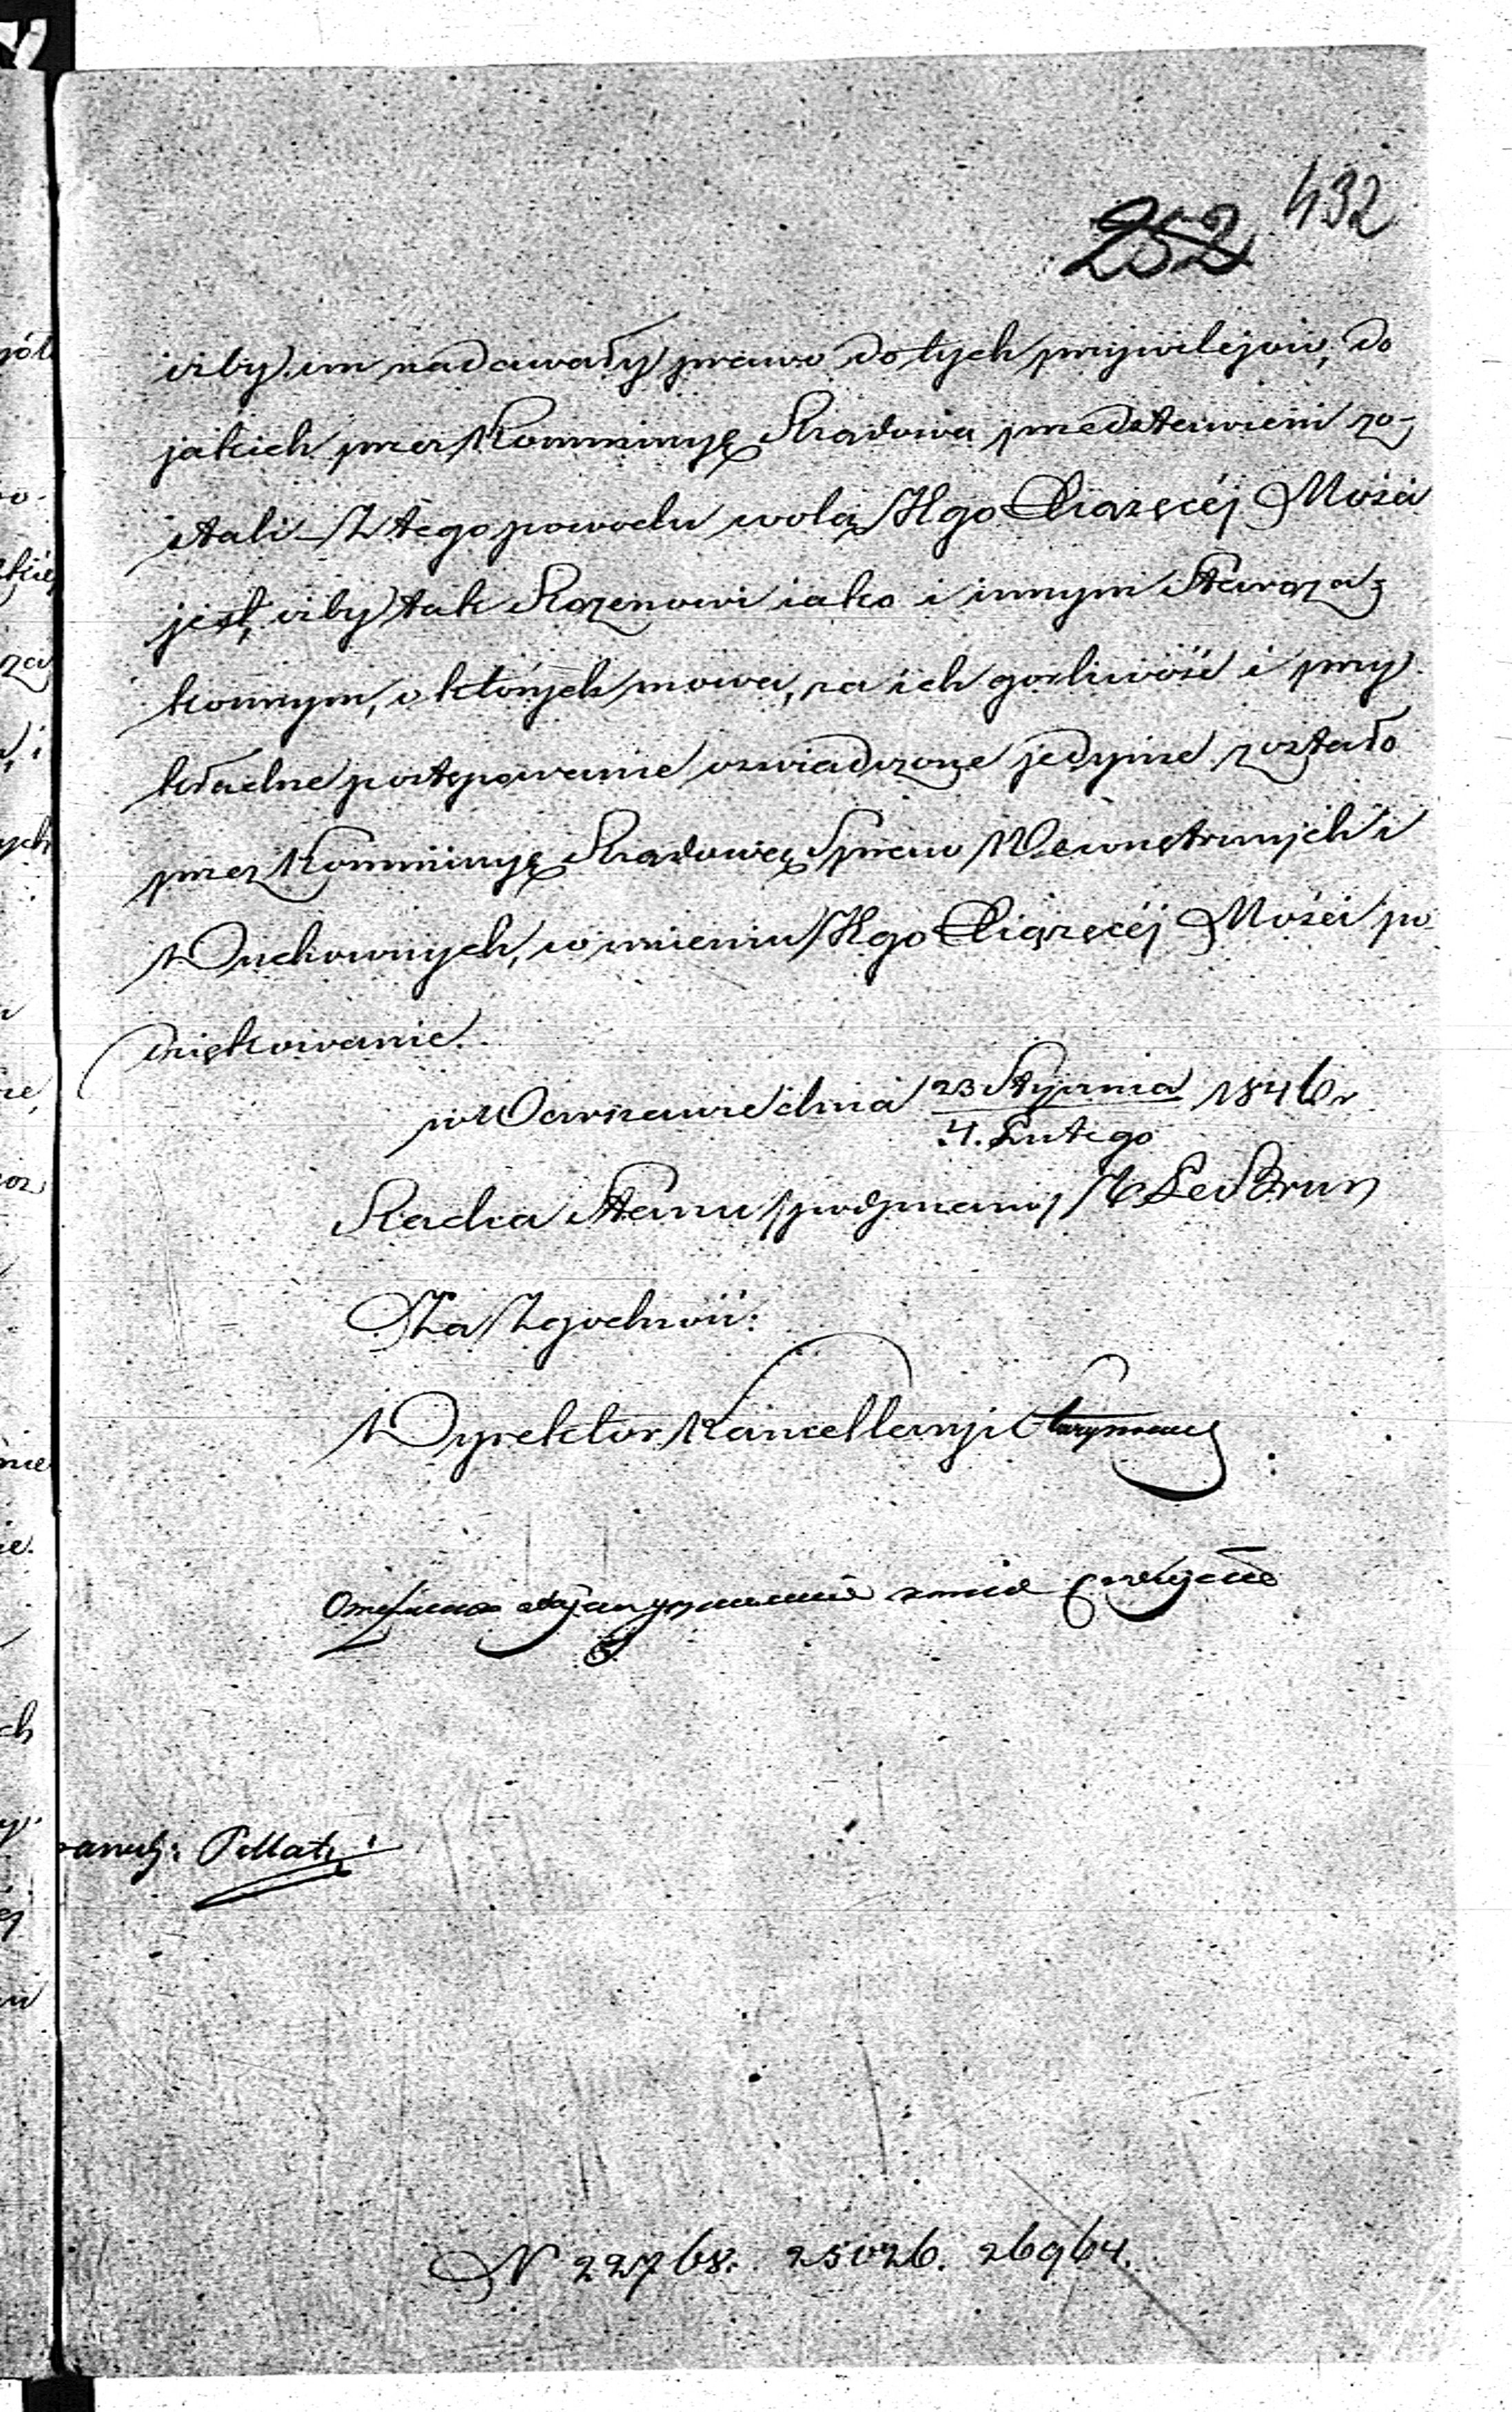 432
252
iżby im nadawały prawo do tych przywilejów, do
jakich przez Kommissyę Rządową przedstawieni zo-
stali. Z tego powodu wolą JKgo Xiążęcéj Mości
jest, iżby tak Rozenowi iako i innym Staroza-
konnym, o których mowa, za ich gorliwość i przy
kładne postępowanie oswiadczone jedynie zostało
przez Kommissyę Rządową Spraw Wewnętrznych i
Duchownych, w imieniu JKgo Xiążęcéj Mości po
dziękowanie.
w Warszawie dnia 23 Stycznia / 4. Lutego 1846 r
Radca Stanu /podpisano/ Le Brun
Za Zgodność:
Dyrektor Kancellaryi
N 22768. 25026. 26964.